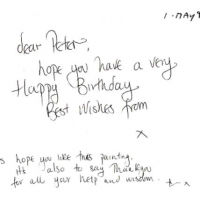 1. MAY
dear Peter,
hope you have a very
Happy Birthday
Best Wishes from
x
hope you like this painting.
It's also to say Thankyou
for all your help and wisdom.
x